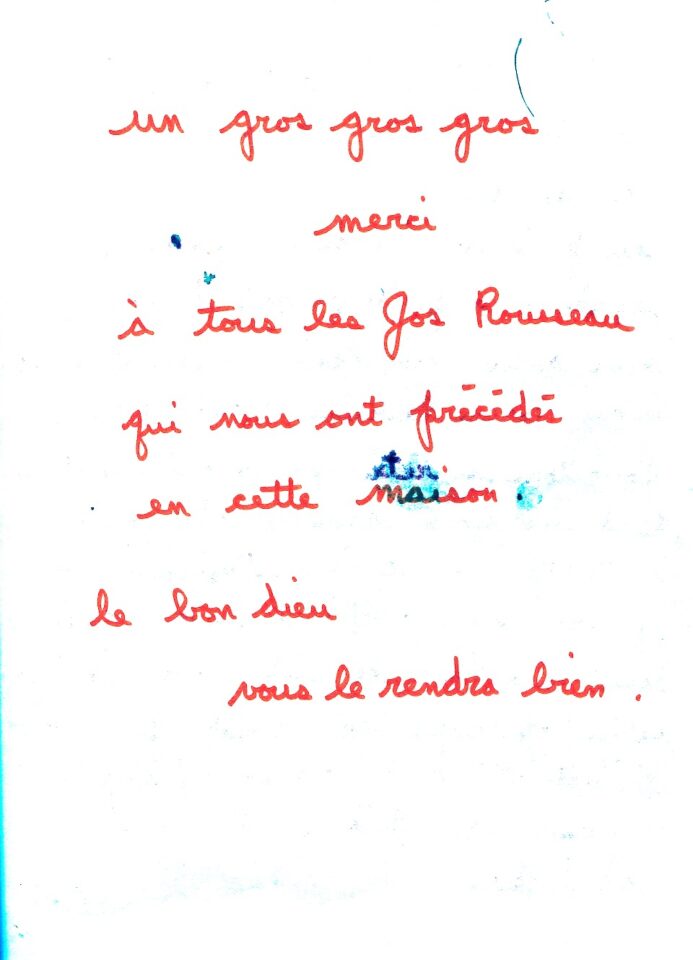 un gros gros gros
merci
à tous les Jos Rousseau
qui nous ont précédés
en cette maison.
le bon dieu
vous le rendra bien.